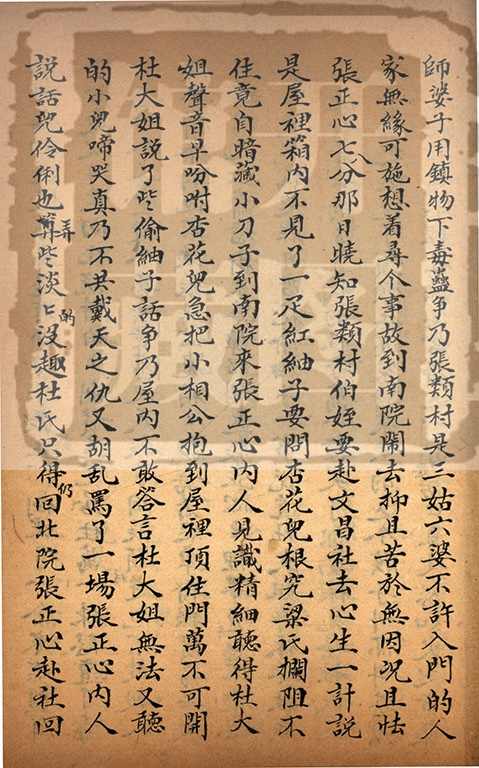 師婆子用鎮物下毒蠱争乃張類村是三姑六婆不許入門的人
家無緣可施想着尋个事故到南院鬧去抑且苦於無因况且怯
張正心七八分那日曉知張類村伯姪要赴文昌社去心生一計説
是屋裡箱内不見了一疋紅紬子要問杏花兒根究梁氏攔阻不
住竟自暗藏小刀子到南院來張正心内人見識精細聽得杜大
姐聲音早吩咐杏花兒急把小相公抱到屋裡頂住門萬不可開
杜大姐説了些偷紬子話争乃屋内不敢答言杜大姐無法又聽
的小兒啼哭真乃不共戴天之仇又胡乱罵了一場張正心内人
説話兒伶俐也算弄些淡ㄣ的没趣杜氏只得仍回北院張正心赴社回